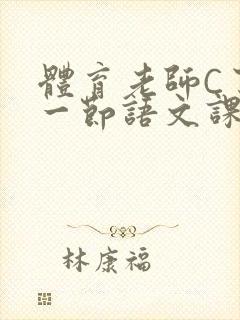 體育老師C
一節語文課
林康福